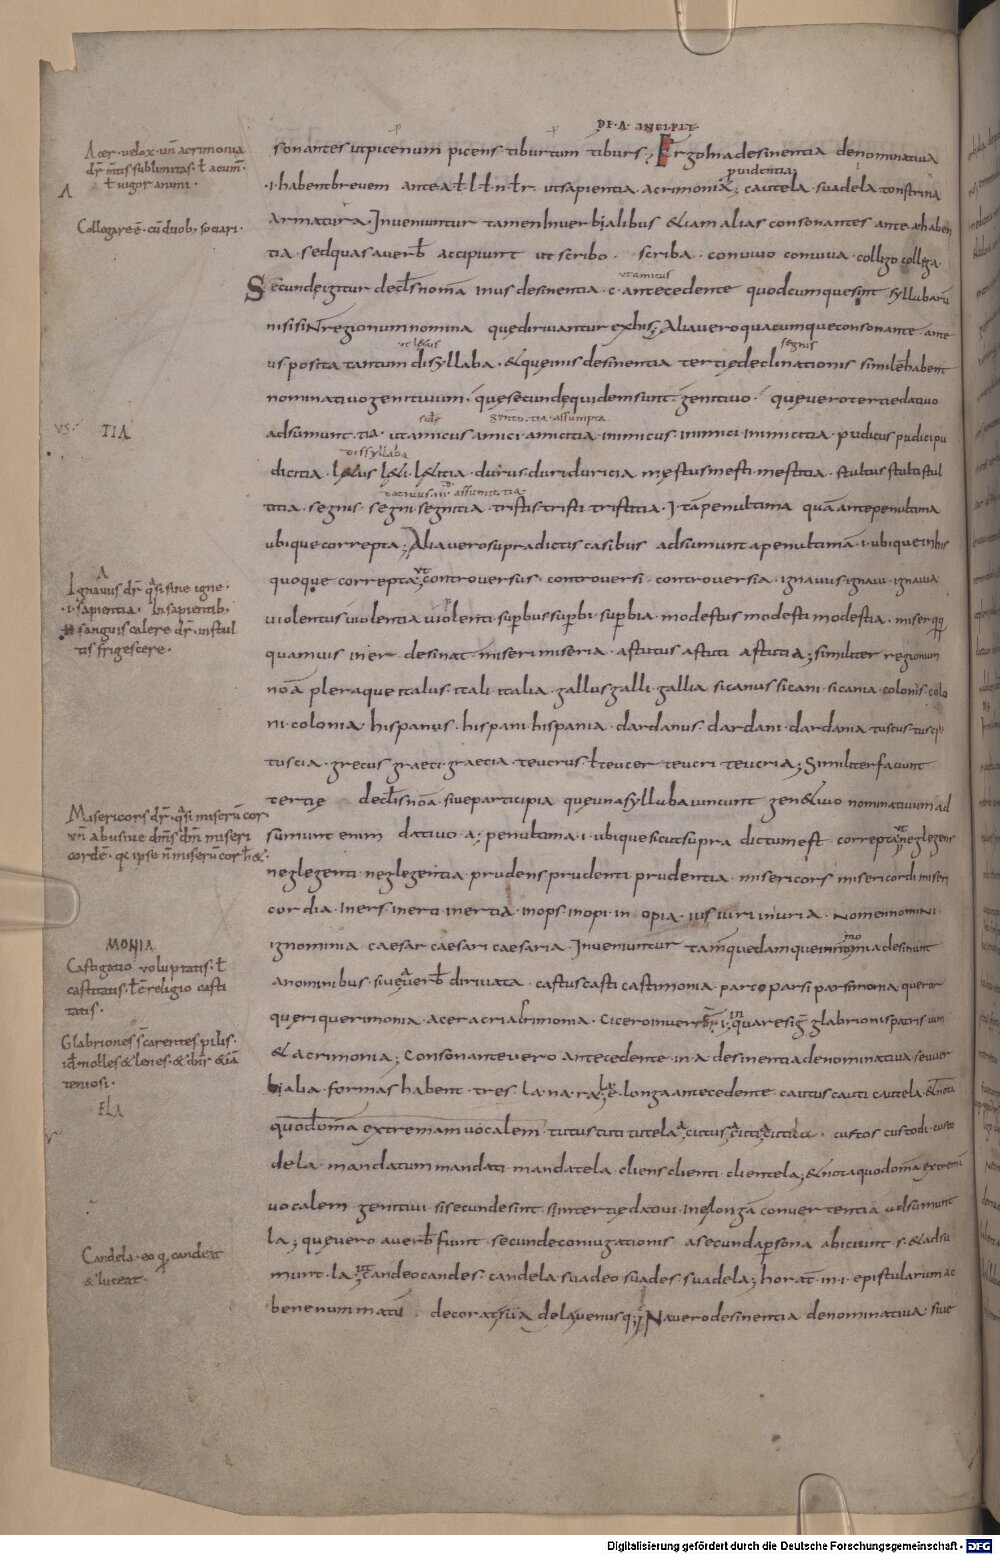 DE · A · INCIPIT
sonantes ut picenum picens tiburtum tiburs ; Ergo In a desinentia denominatiua
puidentia
·i· habent breuem ante a ł l ł n ł r · ut sapientia · acrimonia ; cautela · suadela tonstrina
armatura · Inueniuntur tamen In uerbialibus & iam alias consonantes ante a haben
tia · sed quas a uerb̄ accipiunt ut scribo · scriba · conuiuo conuiua · colligo collega ·
ut amicus
Secunde igitur decl̄s nom̄a In us desinentia · c · antecedente quodcumque sint syllabarū
nisi sin̄t regionum nomina que diriuantur ex his ; Alia uero quacumque consonante ante
ut l&us
segnis
us posita tantum disyllaba · & que in is desinentia tertię declinationis similē habent
nominatiuo genitiuum · quę secundę quidem sunt · genitiuo · quę uero tertie datiuo
adsumunt · tia · ut amicus amici · amicitia · inimicus · inimici · inimicitia · pudicus pudici pu
dissyllaba
dicitia · l&us l&i · l&itia · durus duri duricia · męstus mesti mestitia · stultus stulti stul
titia · segnis · segni · segnitia · tristis · tristi · tristitia · I · tā penultima quā antepenultima
ubique correpta ; Alia uero supra dictis casibus adsumunt a penultimā · i · ubique in his
quoque correpta ; ut controuersus · controuersi · controuersia · ignauus · ignaui · ignauia
uiolentus uiolentia uiolenti · supbus · supbi · supbia · modestus modesti modestia · miser
quamuis in er desinat · miseri miseria · astutus astuti astutia ; similiter regionum
nōa pleraque italus · itali · italia · gallus galli · gallia sicanus sicani · sicania · colonis · colo
ni · colonia · hispanus · hispani · hispania · dardanus · dardani · dardania tuscus · tusci
tuscia · grecus graeci · graecia · teucrus · ł teucer teucri teucria ; Similiter faciunt
tertię decl̄is nōa · siue participia quę una syllaba uincunt gen&iuo nominatiuum ad
sumunt enim datiuo · a ; penultima · i · ubique sicut supra dictum est correpta ut neglegens
neglegenti · neglegentia · prudens prudenti prudentia · misericors misericordi miseri
cordia · iners · inerti inertia · inops · inopi · in opia · ius iuri iniuria · nomen nomini ·
ignominia caesar caesari caesaria · Inueniuntur tam̄ quedam que in monia desinunt
a nominibus · siue a uerb̄ diriuata · castus casti castimonia · parco parsi parsimonia · queror
quęri querimonia · acer acri acrimonia · Cicero in uerr̄ i ; in quare sig̃ glabrionis patris uim
& acrimonia ; Consonante uero antecedente · in · a · desinentia denominatiua seu uer
bialia · formas habent tres · la · na · ra ; la · e · longa antecedente · cautus cauti cautela · & n̄ nota
quod om̄a extremam uocalem · tutus tuti tutela · custos custodi · custo
dela · mandatum mandati · mandatela · cliens clienti · clientela ; & nota quod om̄a extremā
uocalem genitiui · si secunde sint · si in tertię datiui · in e longā conuertentia adsumunt
la ; quę uero a uerb̄ fiunt · secunde coniugationis a secunda psona abiciunt · s · & adsu
munt · la ; ut candeo candes · candela · suadeo suades · suadela ; horat̄ · in · i · epistularum ac
bene nummatū · decorat suadela uenusq ; Na uero desinentia denominatiua · siue
Acer · uelox · un̄ acrimonia
dr̄ m̄tis sublimitas · ł acum̄ ·
ł uigor animi ·
A
Collegare ē · cū duob; sociari ·
US · TIA
Ignauus dr̄ q̄si sine igne ·
·i· sapientia · In sapientib;
n̄ sanguis calere dr̄ · in stul
tis frigescere ·
Misericors dr̄ · q̄si miserū cor
un̄ abusiue dm̄s dm̄ miseri
cordē ·
MONIA
Castigatio uoluptatis · ł
castitatis · ł ē religio casti
tatis ·
Glabriones s̄ carentes pilis ·
id̄ molles & lenes · & dn̄r &iā
teniosi ·
ELA
Candela · eo q̄ candeat
& luceat ·
Digitalisierung gefördert durch die Deutsche Forschungsgemeinschaft · DFG